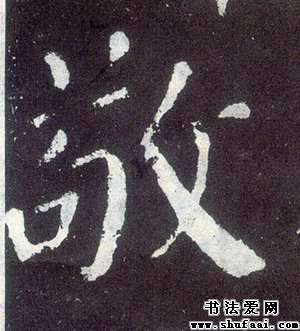 敬
书法爱网
www.shufaai.com